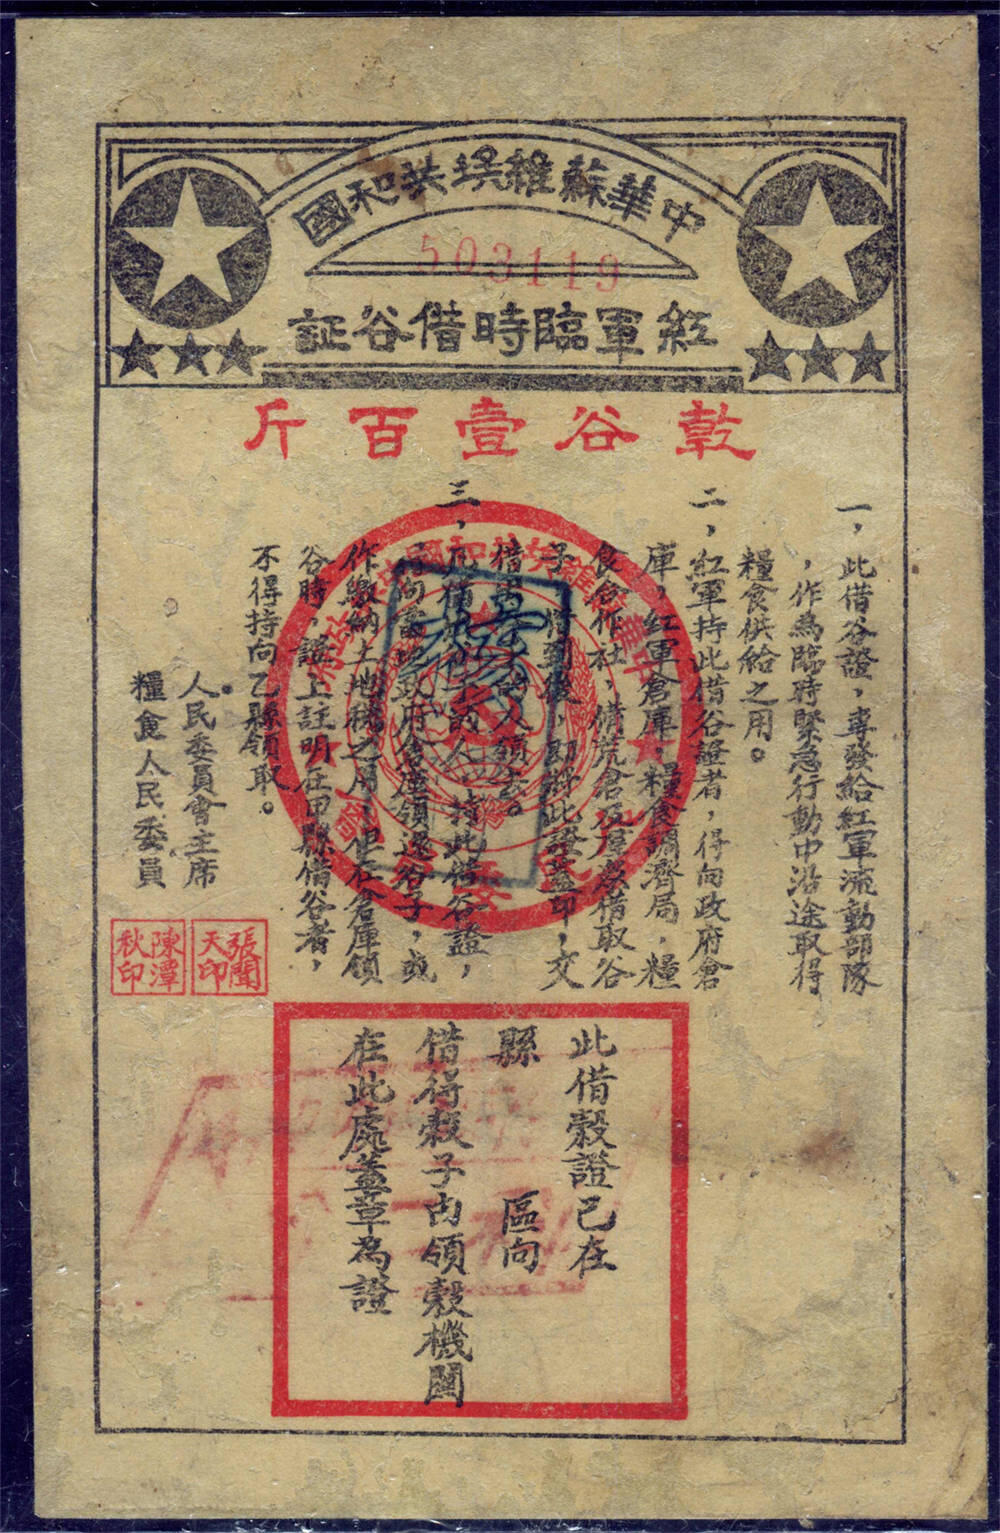 中華蘇維埃共和國
503119
紅軍臨時借谷証
乾谷壹百斤
一，此借谷證，專發給紅軍流動部隊
，作為臨時緊急行動中沿途取得
糧食供給之用。
二，紅軍持此借谷證者，得向政府倉
庫，紅軍倉庫，糧食調濟局，糧
食合作社，備荒倉及羣眾借取谷
子，借到後，即將此證蓋印，交
借出谷子的人領去。
三，凡借出谷子的人，持此借谷證，
得向當地政府倉庫領還谷子，或
作繳納土地稅之用，但在倉庫領
谷時，證上註明在甲縣借谷者，
不得持向乙縣領取。
人民委員會主席
糧食人民委員
張聞天印
陳潭秋印
此借穀證已在
縣 區向
借得穀子由領穀機關
在此處蓋章為證